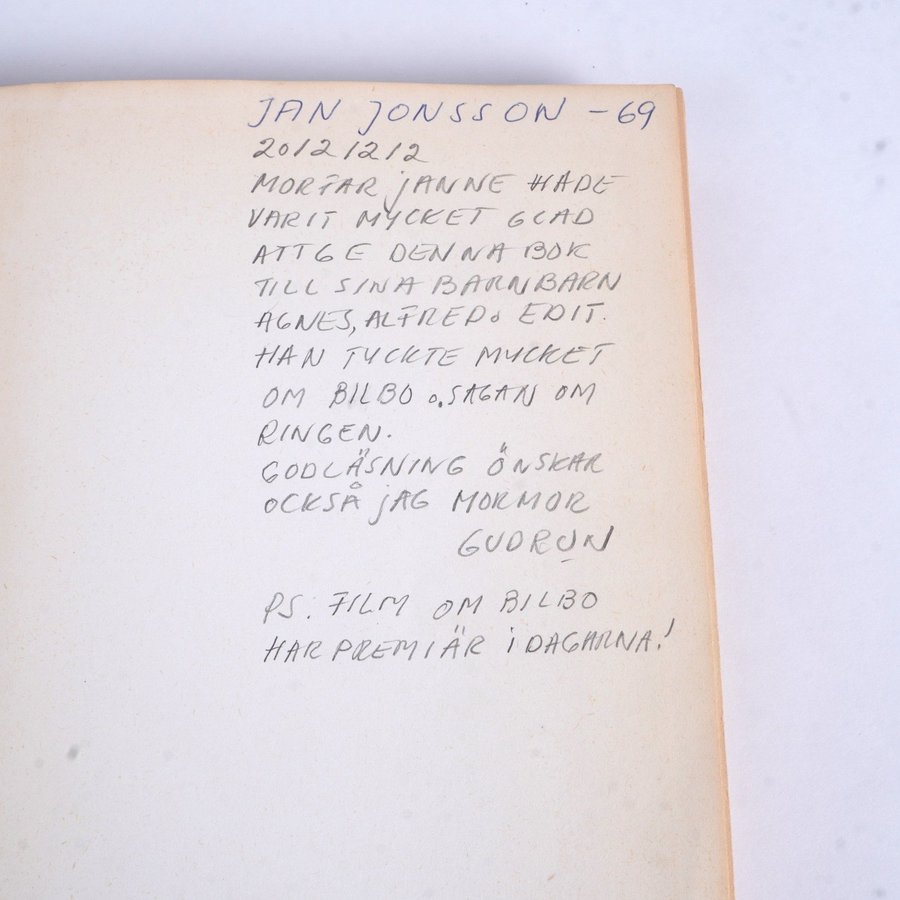 JAN JONSSON - 69
20121212
MORFAR JANNE HADE
VARIT MYCKET GLAD
ATT GE DENNA BOK
TILL SINA BARNBARN
AGNES, ALFRED o EDIT.
HAN TYCKTE MYCKET
OM BILBO o. SAGAN OM
RINGEN.
GOD LÄSNING ÖNSKAR
OCKSÅ JAG MORMOR
GUDRUN
PS. FILM OM BILBO
HAR PREMIÄR I DAGARNA!